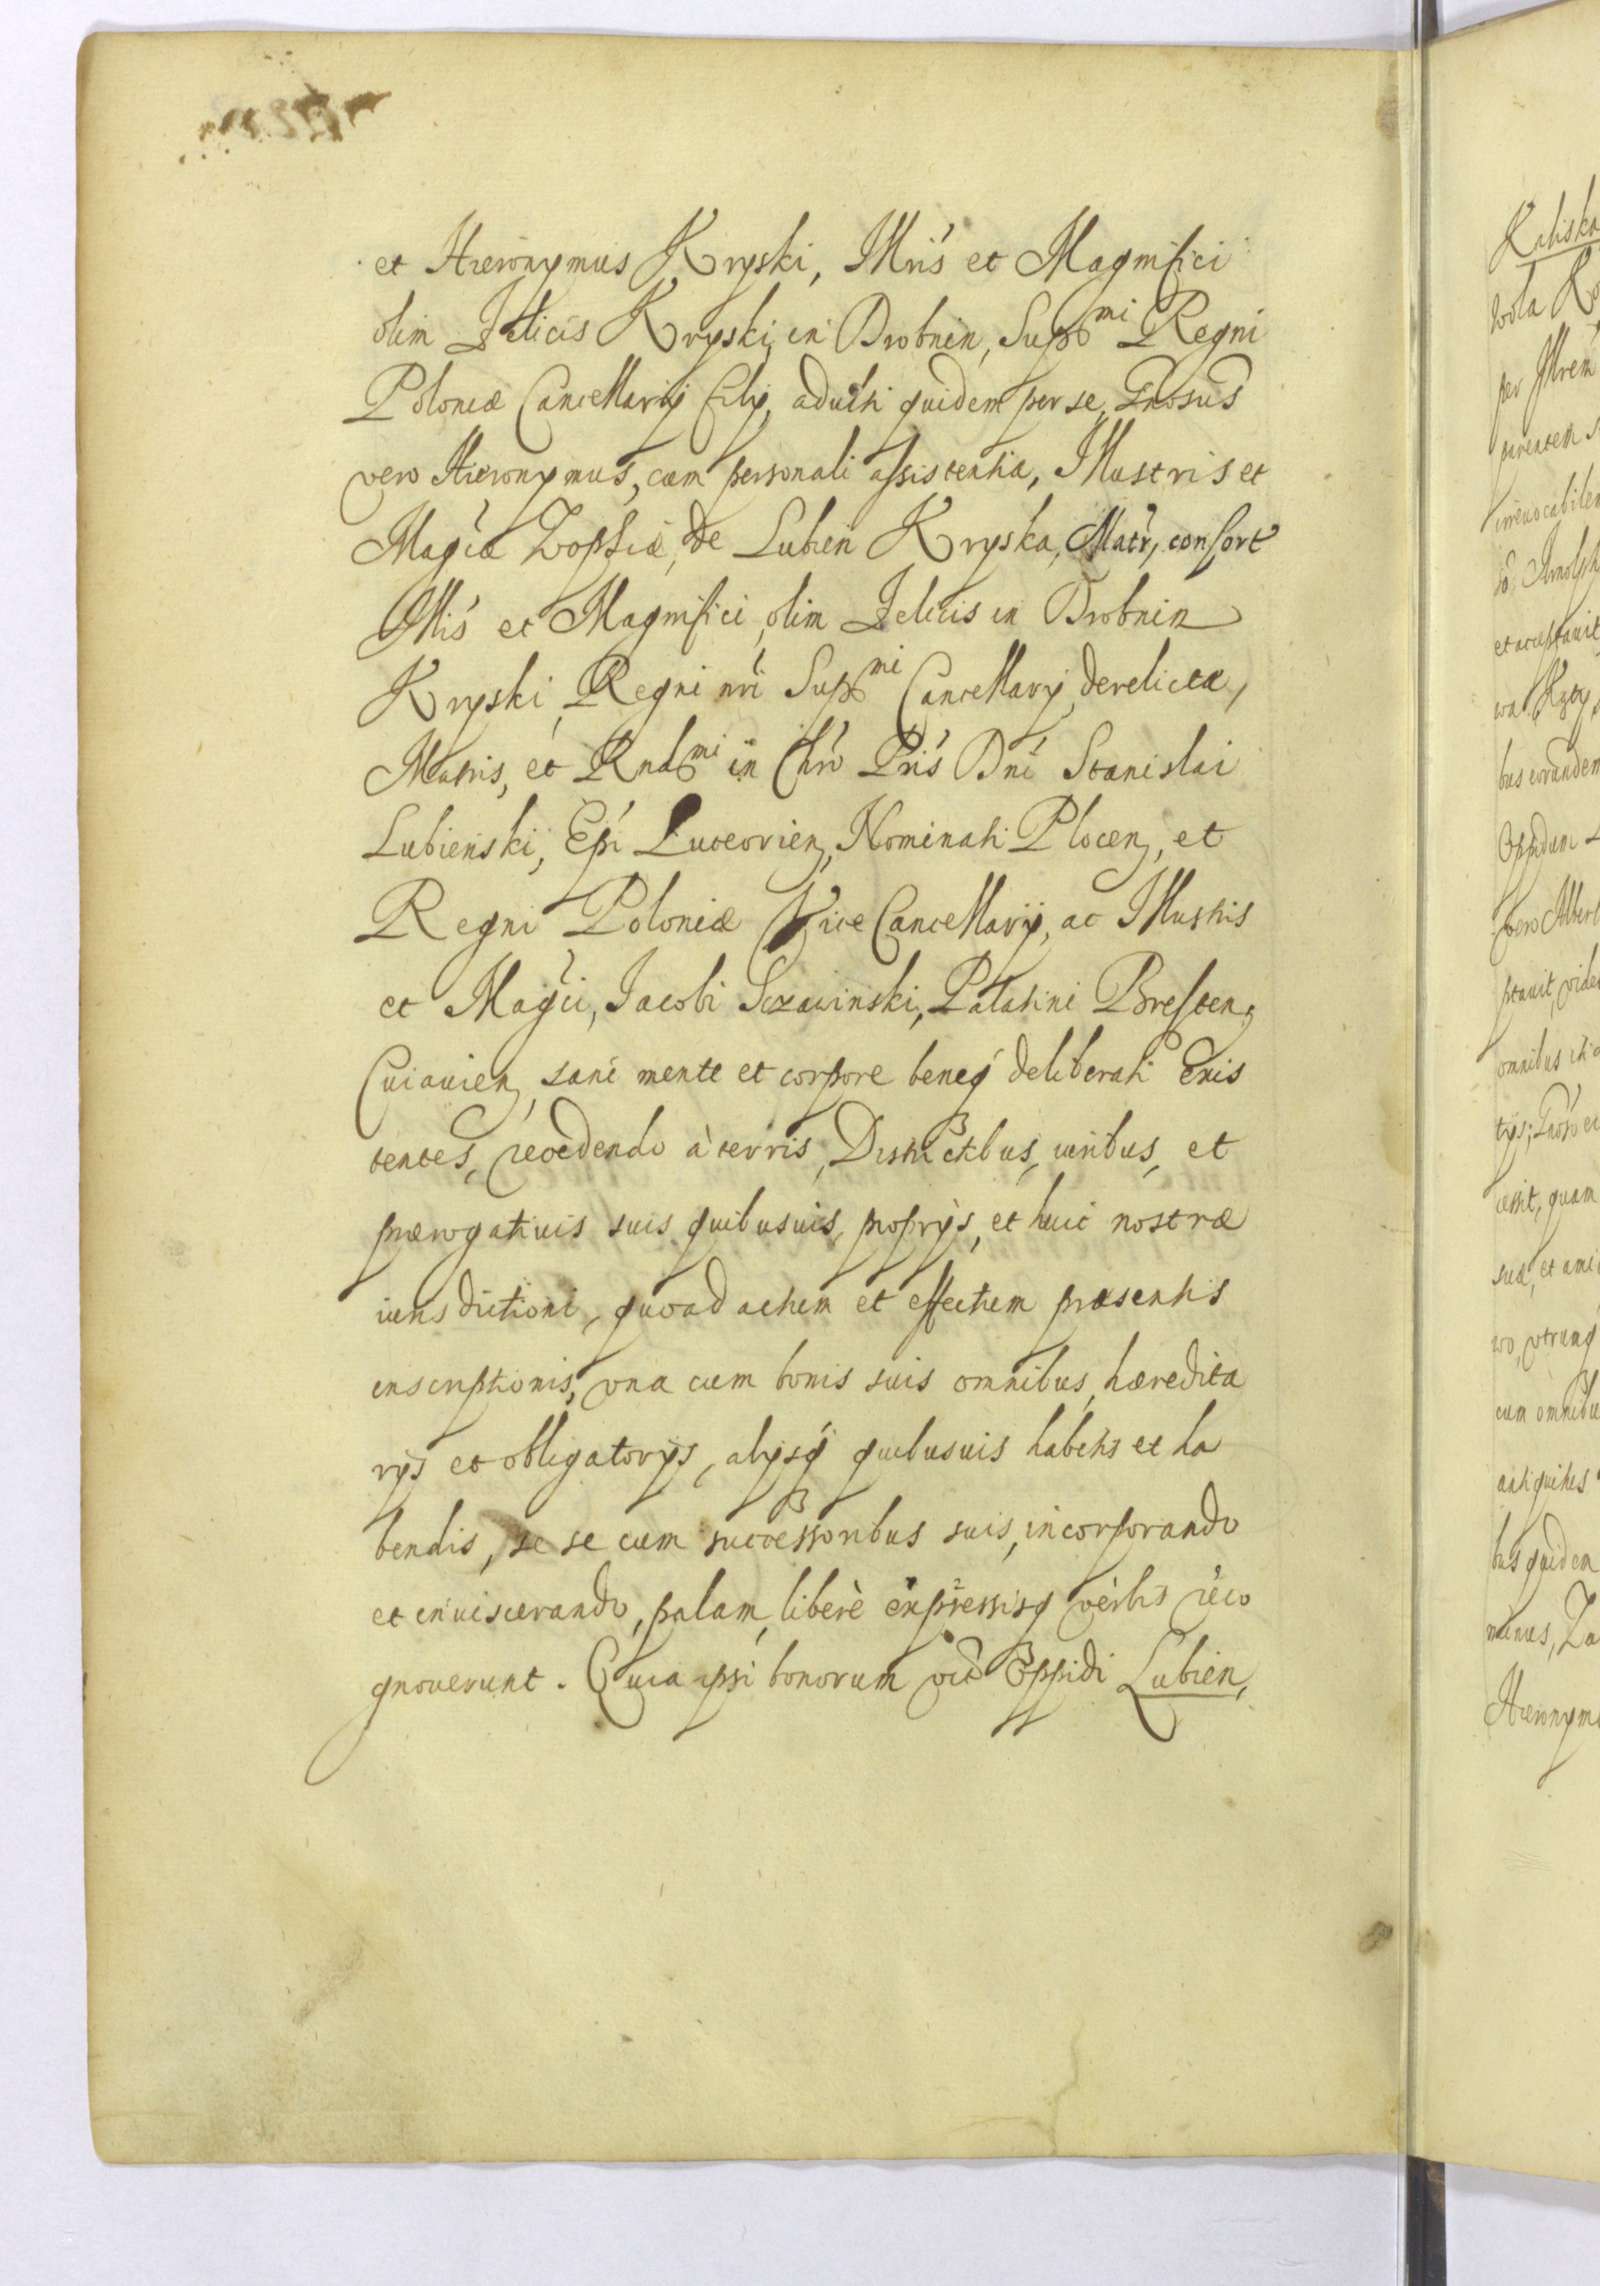 et Hieronymus Kryski, Illris et Magnifici
olim Felicis Kryski in Drobnin, Supmi Regni
Poloniæ Cancellarij filij, adulti quidem per se, Gnosus
vero Hieronymus, cum personali assistentia, Illustris et
Magcæ Zophiæ, de Lubien Kryska, Matr, consort
Illris et Magnifici, olim Felicis in Drobnin
Kryski Regni nri Supmi Cancellarij derelictæ,
Matris, et Rndmi in Chro Pris Dni Stanislai
Lubienski, Epi Luceorien, Nominati Plocen, et
Regni Poloniæ Vice Cancellarij, ac Illustris
et Magci, Jacobi Sczawinski, Palatini Bresten,
Cuiauien, sani mente et corpore beneq deliberati Exis
tentes, recedendo à terris, Districtibus, iuribus, et
prærogatiuis suis quibusuis, proprijs, et huic nostræ
iurisdictioni, quoad actum et effectum præsentis
inscriptionis, vna cum bonis suis omnibus, hæredita
rijs et obligatorijs, alijsq quibusuis habitis et ha
bendis, se se cum successoribus suis, incorporando
et inuiscerando, palam, liberè expressisq verbis reco
gnouerunt. Quia ipsi bonorum vid Oppidi Lubien,
Kaliska
Wola
per Illrem
parentem
irreuocabilem
et acceptauit
bus eorundem
Oppidum
vero Albert
ptauit, vide
omnibus
cessit, quam
suæ, et ami
wo, vtrunq
cum omnibu
antiquitus
bus quidem
minus, Za
Hieronym